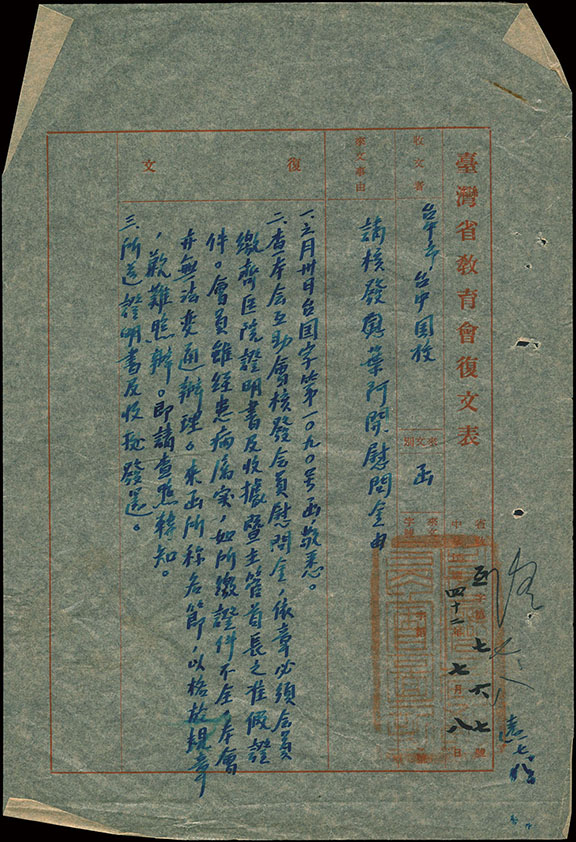 臺灣省教育會復文表
收文者
台中市 台中国校
來文別
函
來文字號
來文事由
請核發與葉阿開慰問金由
四十二年七月八日
七六七號
復文
一、六月卅日台国字第一〇九〇号函敬悉。
二、查本会互助會核發会員慰問金,依章必須会員
繳齊医院證明書及收據暨主管首長之准假證
件。會員雖經患病属实,如所繳證件不全,本會
亦無法变通辦理。來函所称各節,以格於規章
,歉難照辦。即請查照轉知。
三、所送證明書及收據發還。